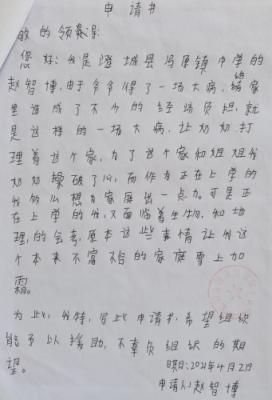 申请书
敬的领导:
您好:我是澄城县冯原镇中学的
赵智博,由于爷爷得了一场大病,给家
里造成了不少的经济负担,就
是这样的一场大病,让奶奶打
理着这个家,为了这个家和姐姐我
奶奶操破了心,而作为正在上学的
我的心想为家庭出一点力。可是正
在上学的我,又面临着生物,和地
理,的会考,原本这些事情让我这
个本来不富裕的家庭雪上加
霜。
为此,我特,写此申请书,希望组织
能予以援助,不辜负组织的期
望。
日期:2021年4月2日
申请人:赵智博